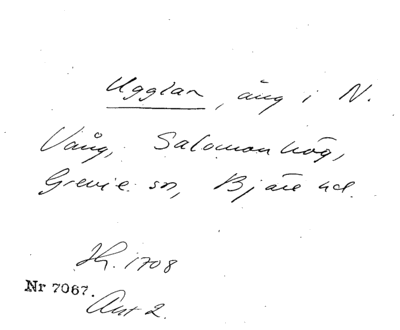 Ugglan, äng i N.
Vång, Salomonhög,
Grevie sn, Bjäre hd.
Jh. 1708
Nr 7067.
Akt 2.